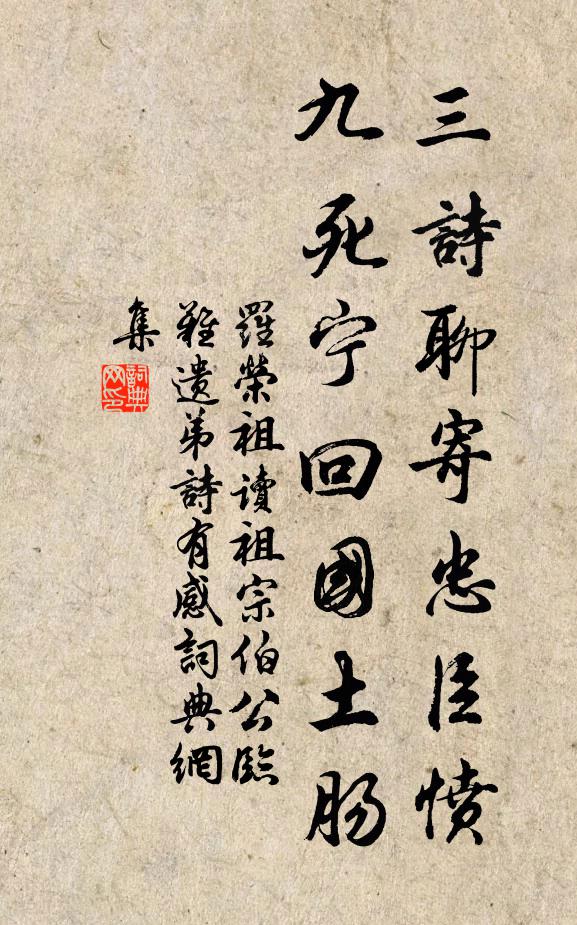 三詩聊寄忠臣憤
九死宁回國土腸
羅榮祖讀祖宗伯公臨
難遺弟詩有感詞典網
集
詞典
网印